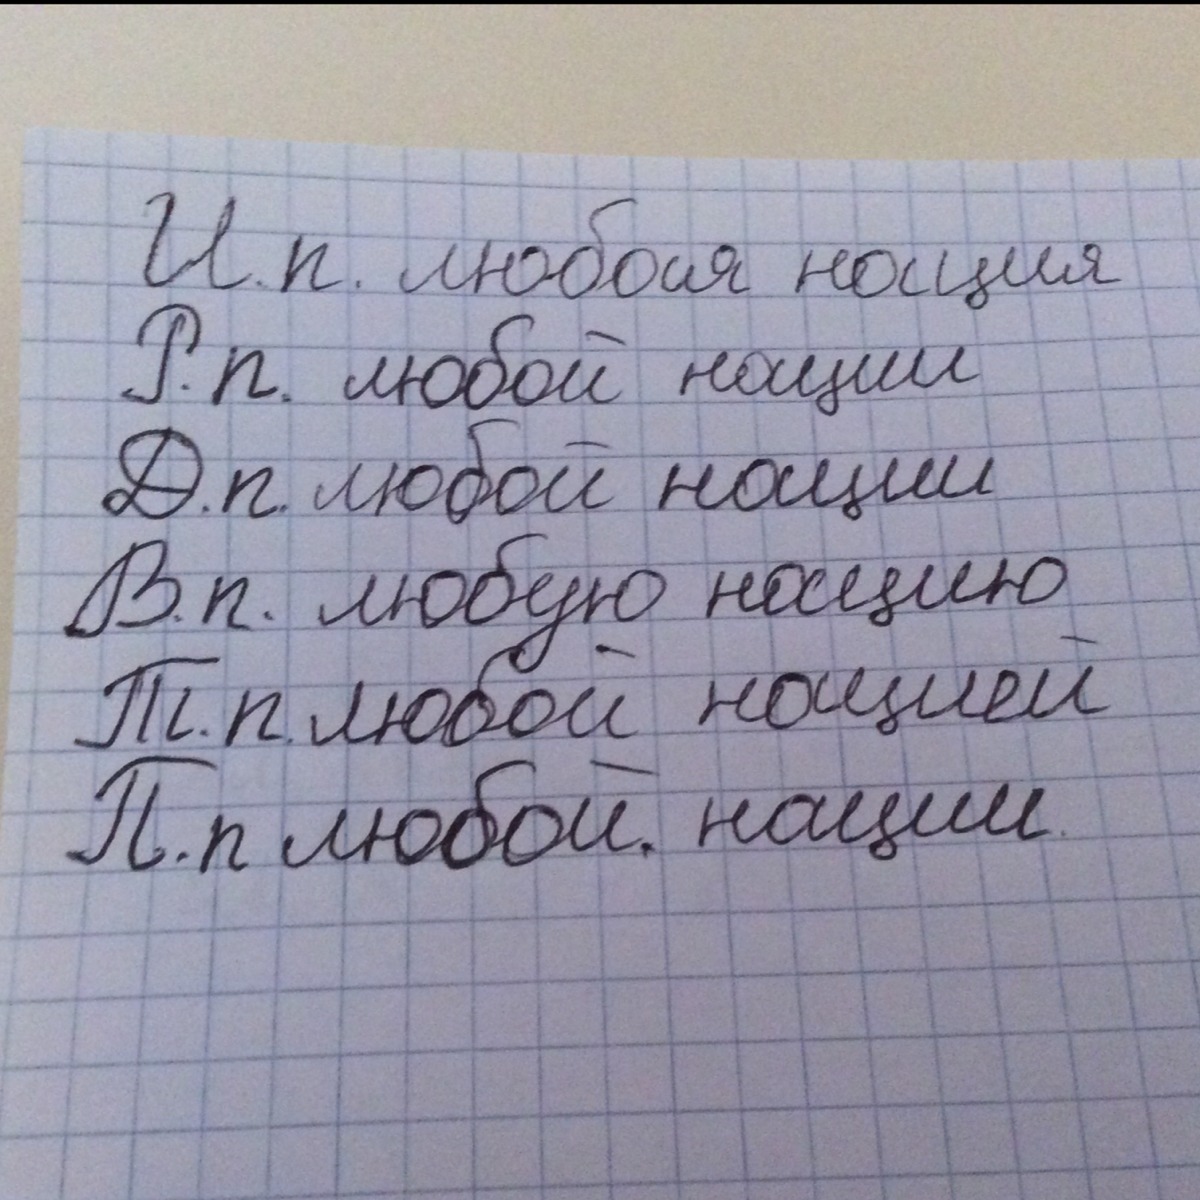 И.п. любая нация
Р.п. любой нации
Д.п. любой нации
В.п. любую нацию
Т.п. любой нацией
П.п любой. нации.